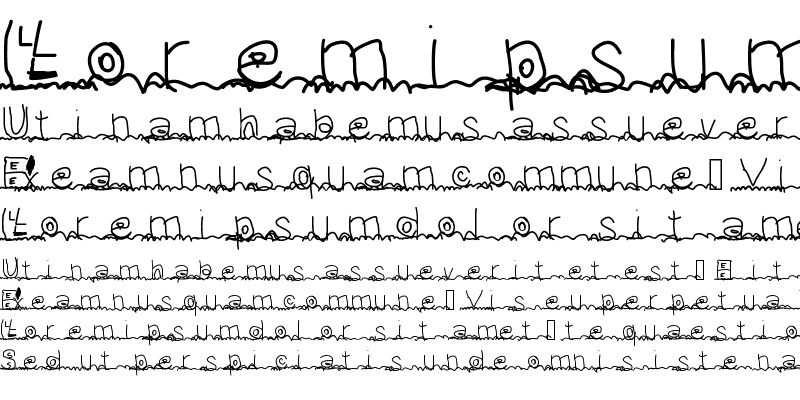 Lorem ipsum
Utinam habemus assuever
Ex eam nusquam commune Vi
Lorem ipsum dolor sit ame
Utinam habemus assueverit et est
Ex eam nusquam commune Vis eu perpetua
Lorem ipsum dolor sit amet te quaestio
Sed ut perspiciatis unde omnis iste na